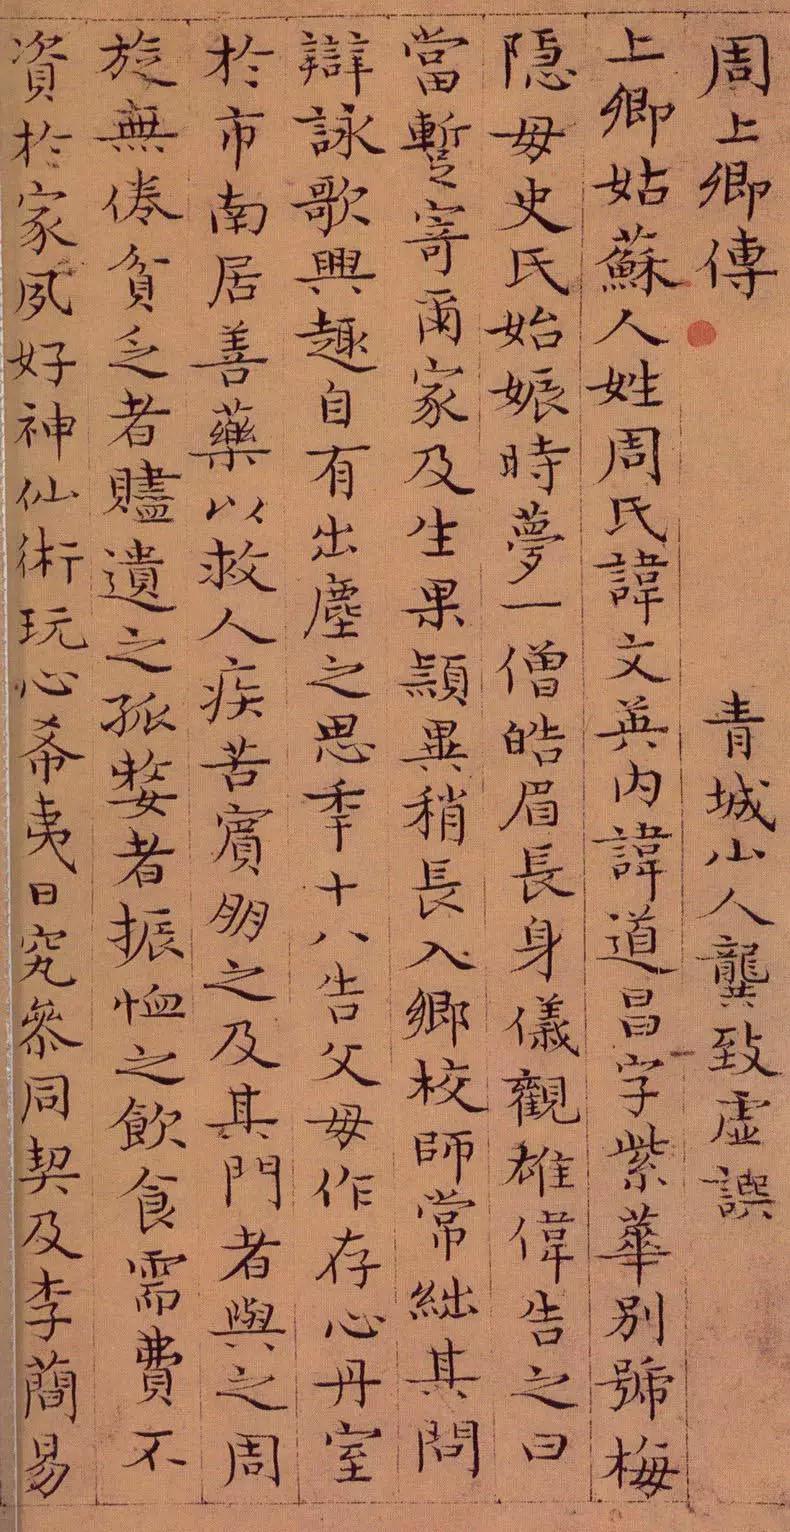 周上卿傳
青城山人龔致虛譔
上卿姑蘇人姓周氏諱文英內諱道昌字紫華別號梅
隱母史氏始娠時夢一僧皓眉長身儀觀雄偉告之曰
當蹔寄爾家及生果頴異稍長入鄉校師常絀其問
辯詠歌興趣自有出塵之思年十八告父母作存心丹室
於市南居善藥以救人疾苦賓朋之及其門者與之周
旋無倦貧乏者贐遺之孤嫠者振恤之飲食需費不
資於家夙好神仙術玩心希夷日究參同契及李簡易